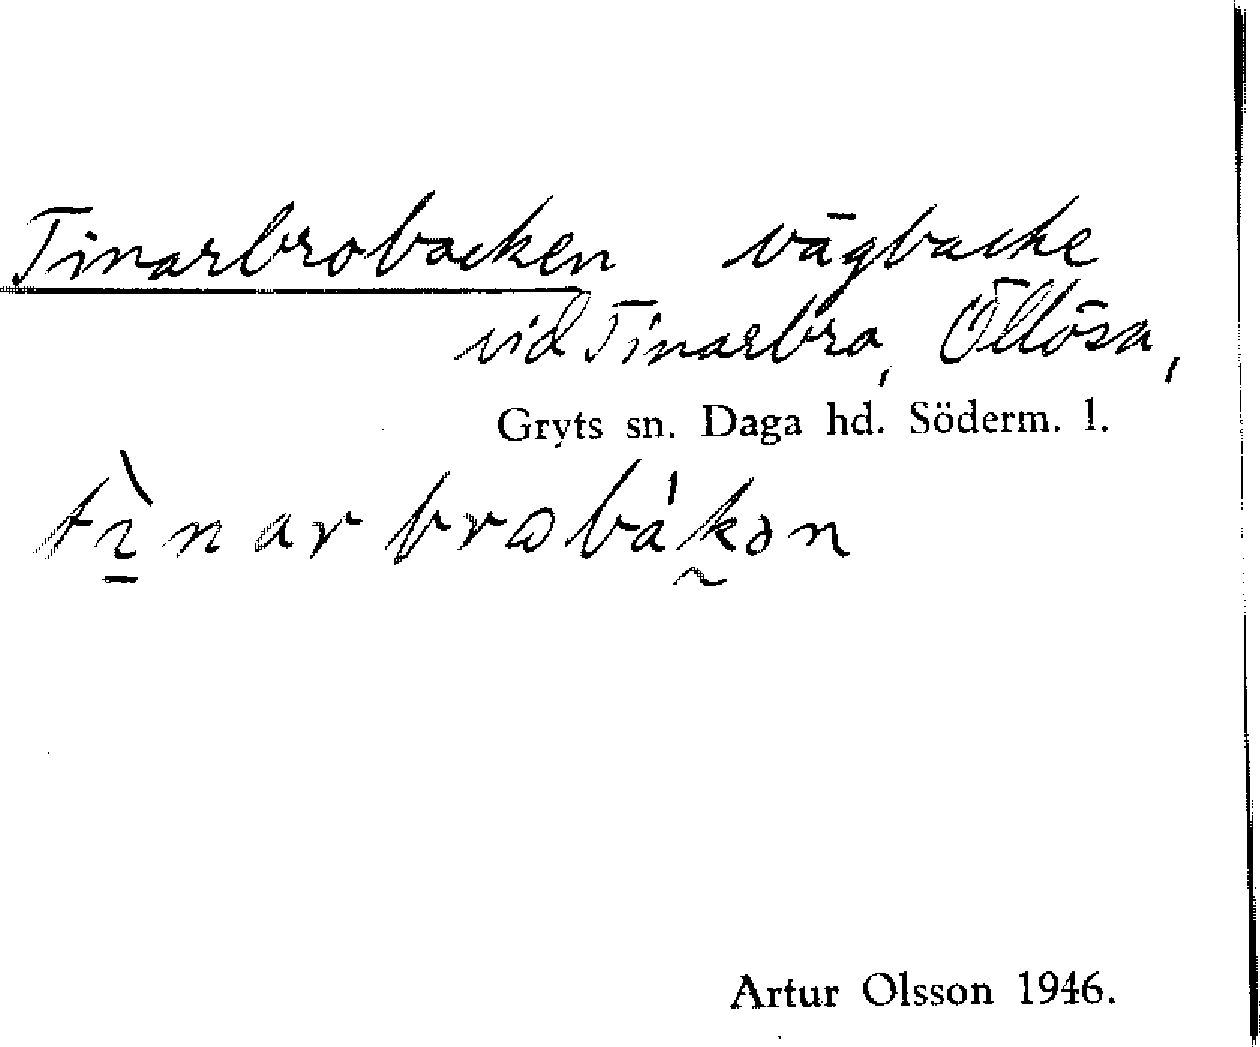 Tinarbrobacken vägbacke
vid Tinarbro, Öllösa,
Gryts sn. Daga hd. Söderm. l.
tı̱̀narbrωbák̰ən
Artur Olsson 1946.